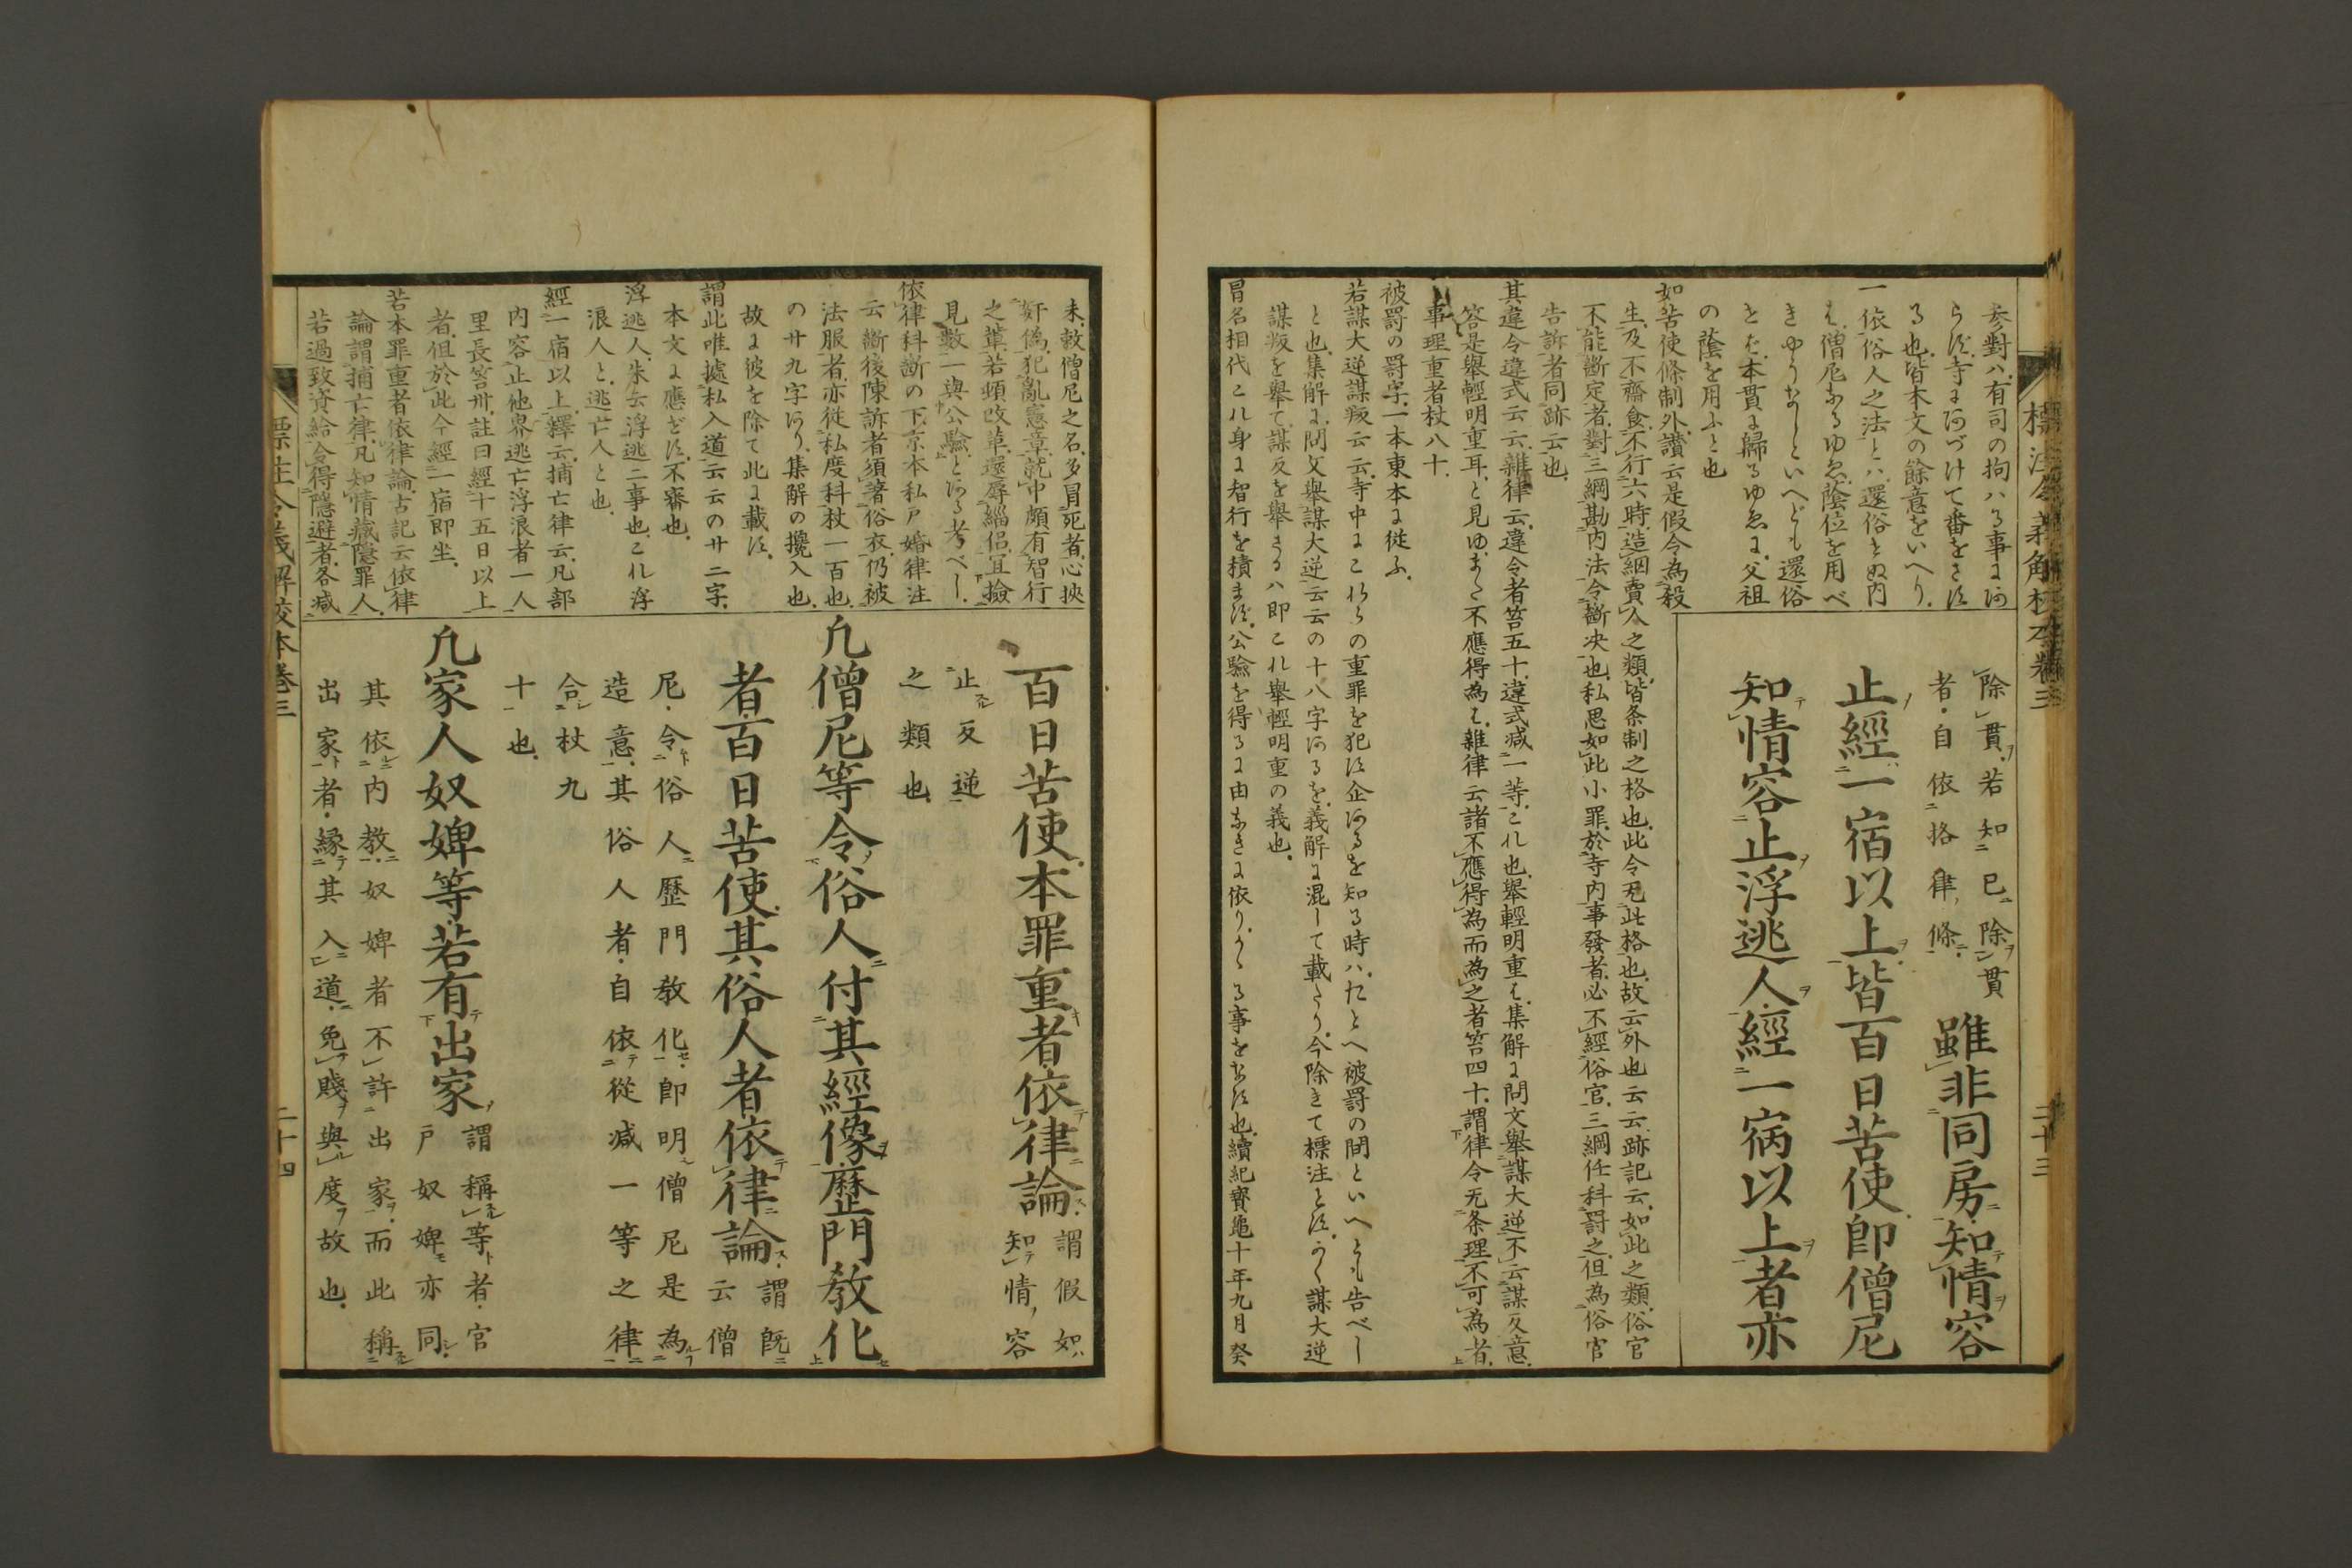 標注令義解校本卷三
二十三
参對ハ、有司の拘ハる事にあ
らず、寺にあづけて番をさす
る也、皆本文の餘意をいへり、
一依俗人之法とハ、還俗せぬ内
は、僧尼なるゆゑ、蔭位を用べ
きやうなしといへども、還俗
せば、本貫に歸るゆゑに、父祖
の蔭を用ふと也
如苦使條制外、讃云是假令為殺
生、及不齋食、不行六時、造網賣人之類、皆条制之格也、此令无此格也、故云外也云云、跡記云、如此之類、俗官
不能斷定者、對三綱勘内法、令斷决也、私思如此小罪、於寺内事發者、必不經俗官、三綱任科罰之、但為俗官
告訴者同跡云也、
其違令違式云云、雜律云、違令者笞五十、違式减一等、これ也、舉輕明重は、集解に問文舉謀大逆、不云謀反意、
答是舉輕明重耳、と見ゆ、また不應得為は、雜律云諸不應得為而為之者笞四十、謂律令无条理、不可為者、
事理重者杖八十、
被罰の罰字、一本東本に従ふ、
若謀大逆謀叛云云、寺中にこれらの重罪を犯す企あるを知る時ハ、たとへ被罰の間といへども告べし
と也、集解に、問父舉謀大逆云云の十八字あるを、義解に混して載たり、今除きて標注とす、かく謀大逆
謀叛を舉て、謀反を舉ざるハ即これ舉輕明重の義也、
冒名相代これ身に智行を積まず、公驗を得るに由なきに依り、かゝる事をなす也、續紀寳龜十年九月癸
除貫、若知已除貫
者、自依格律條、
雖非同房、知情容
止經一宿以上、皆百日苦使、即僧尼
知情容止浮逃人、經一宿以上者、亦
未、敕僧尼之名、多冒死者、心挾
奸偽、犯亂憲章、就中頗有智行
之輩、若頓改革、還辱緇侶、冝撿
見數一與公驗、とある考べし、
依律科斷の下、京本私戸婚律注
云、斷後陳訴者、須著俗衣、仍被
法服者、亦従私度科杖一百也、
の廿九字あり、集解の攙入也、
故に彼を除て此に載す、
謂此唯據私入道云云の廿二字、
本文に應ぜす、不審也、
浮逃人、朱云浮逃二事也、これ浮
浪人と、逃亡人と也、
經一宿以上、釋云、捕亡律云、凡部
内容止他界逃亡浮浪者一人
里長笞卅、註曰經十五日以上
者、但於此令經一宿即坐、
若本罪重者依律論、古記云依律
論、謂捕亡律、凡知情藏隱罪人、
若過致資給、令得隱避者、各减
百日苦使、本罪重者、依律論、
謂假如
知情容
止反逆
之類也、
凢僧尼等、令俗人付其經像、歷門教化
者、百日苦使、其俗人者、依律論、
謂既
云僧
尼、令俗人歷門教化、即明僧尼是為
造意、其俗人者、自依從减一等之律、
合杖九
十也、
凢家人奴婢等、若有出家、
謂稱等者、官
戸奴婢亦同、
其依内教、奴婢者不許出家、而此稱
出家者、縁其入道、免賤與度故也、
標注令義解校本卷三
二十四